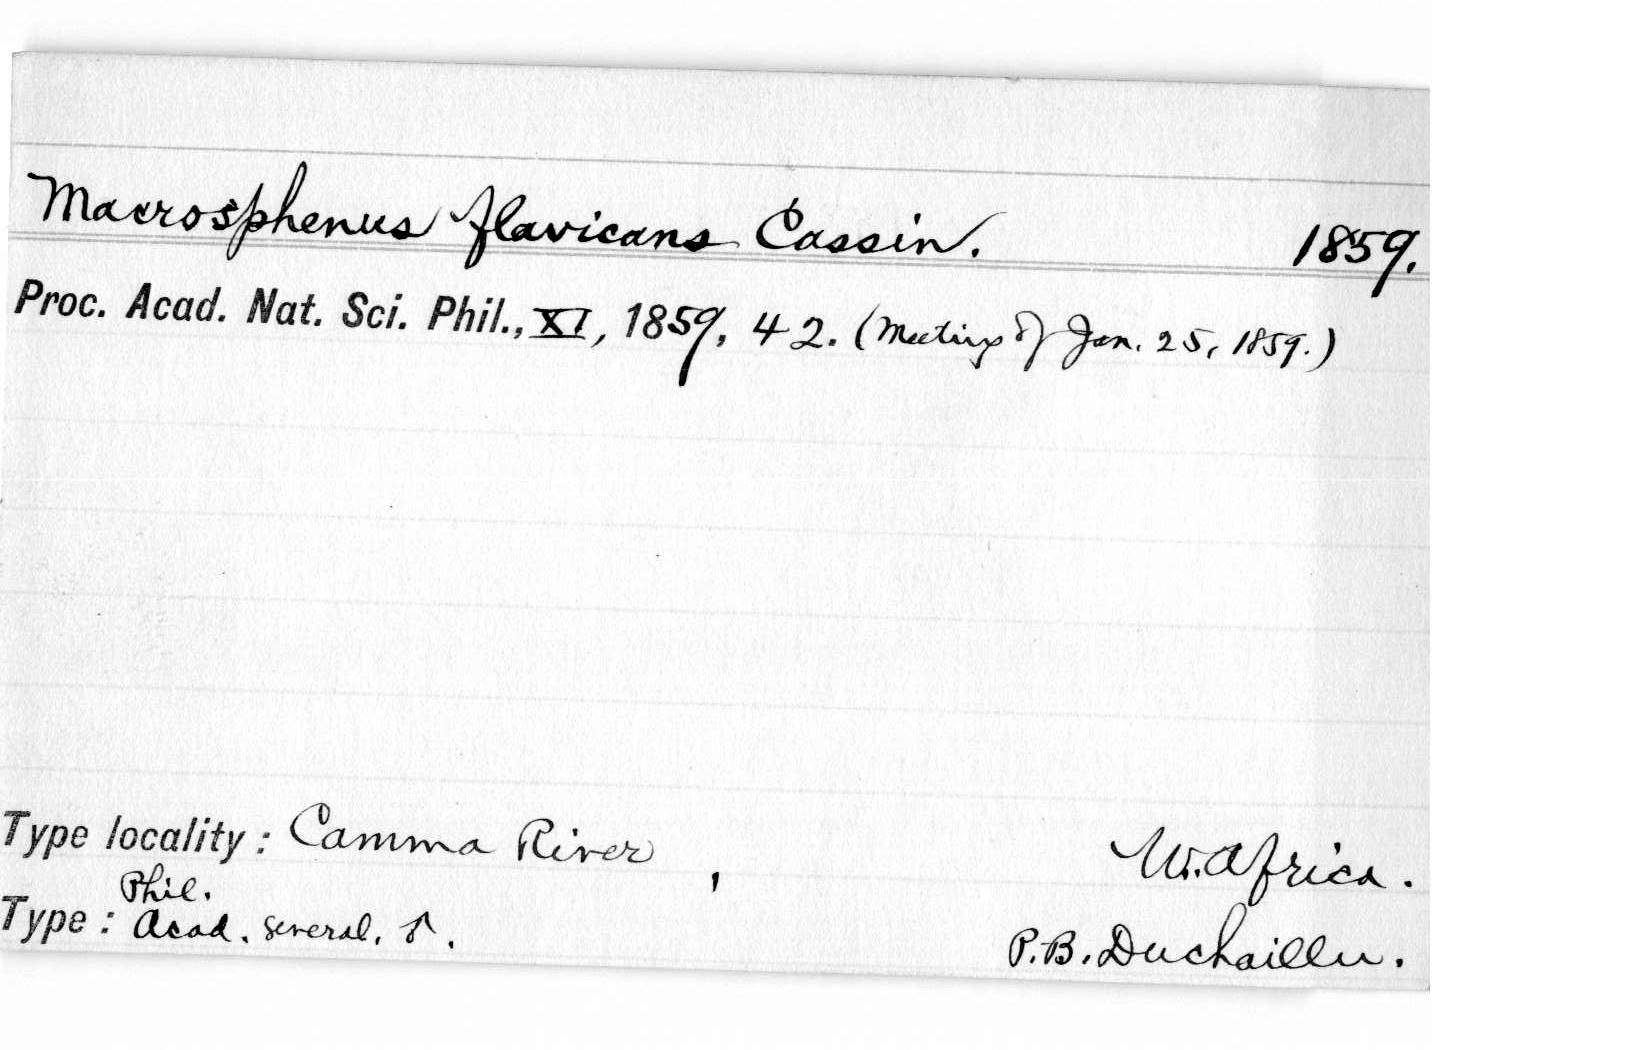 Macrosphenus flavicans Cassin. 1859.
Proc. Acad. Nat. Sci. Phil., XI, 1859, 42. (Meeting of Jan. 25, 1859.)
Type locality: Camma River, W. Africa.
Phil.
Type: Acad. several. ♂. P.B. Duchaillu.